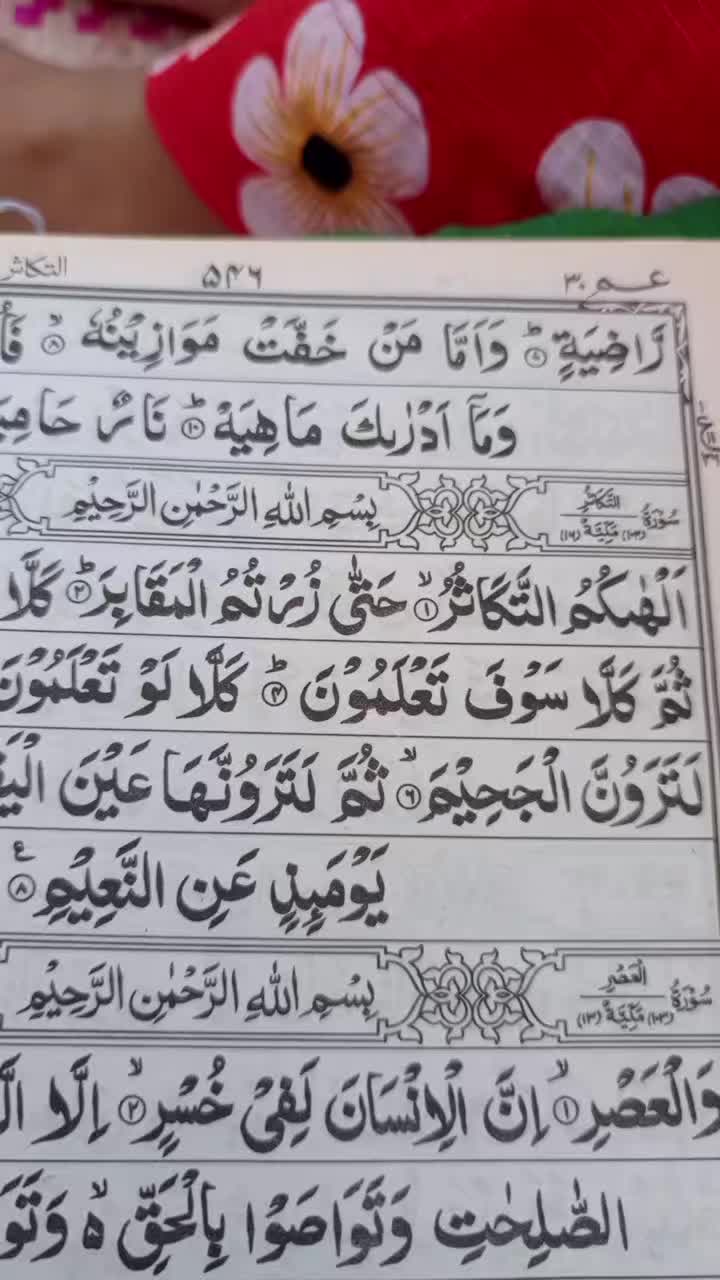 عم ۳۰ ۵۴۶ التكاثر
رَّاضِيَةٍ ؕ‏﴿۷﴾ وَاَمَّا مَنْ خَفَّتْ مَوَازِيْنُهٗ ۙ‏﴿۸﴾
وَمَاۤ اَدْرٰىكَ مَاهِيَهْ ؕ‏﴿۱۰﴾ نَارٌ
سُوْرَةُ التَّكَاثُرِ مَكِّيَّةٌ بِسْمِ اللهِ الرَّحْمٰنِ الرَّحِيْمِ
اَلْهٰىكُمُ التَّكَاثُرُ ۙ‏﴿۱﴾ حَتّٰى زُرْتُمُ الْمَقَابِرَ ؕ‏﴿۲﴾ كَلَّا
ثُمَّ كَلَّا سَوْفَ تَعْلَمُوْنَ ؕ‏﴿۴﴾ كَلَّا لَوْ تَعْلَمُوْنَ
لَتَرَوُنَّ الْجَحِيْمَ ۙ‏﴿۶﴾ ثُمَّ لَتَرَوُنَّهَا عَيْنَ
يَوْمَئِذٍ عَنِ النَّعِيْمِ ‏﴿۸﴾ ع
سُوْرَةُ الْعَصْرِ مَكِّيَّةٌ بِسْمِ اللهِ الرَّحْمٰنِ الرَّحِيْمِ
وَالْعَصْرِ ۙ‏﴿۱﴾ اِنَّ الْاِنْسَانَ لَفِىْ خُسْرٍ ۙ‏﴿۲﴾ اِلَّا
الصّٰلِحٰتِ وَتَوَاصَوْا بِالْحَقِّ ۙ۬